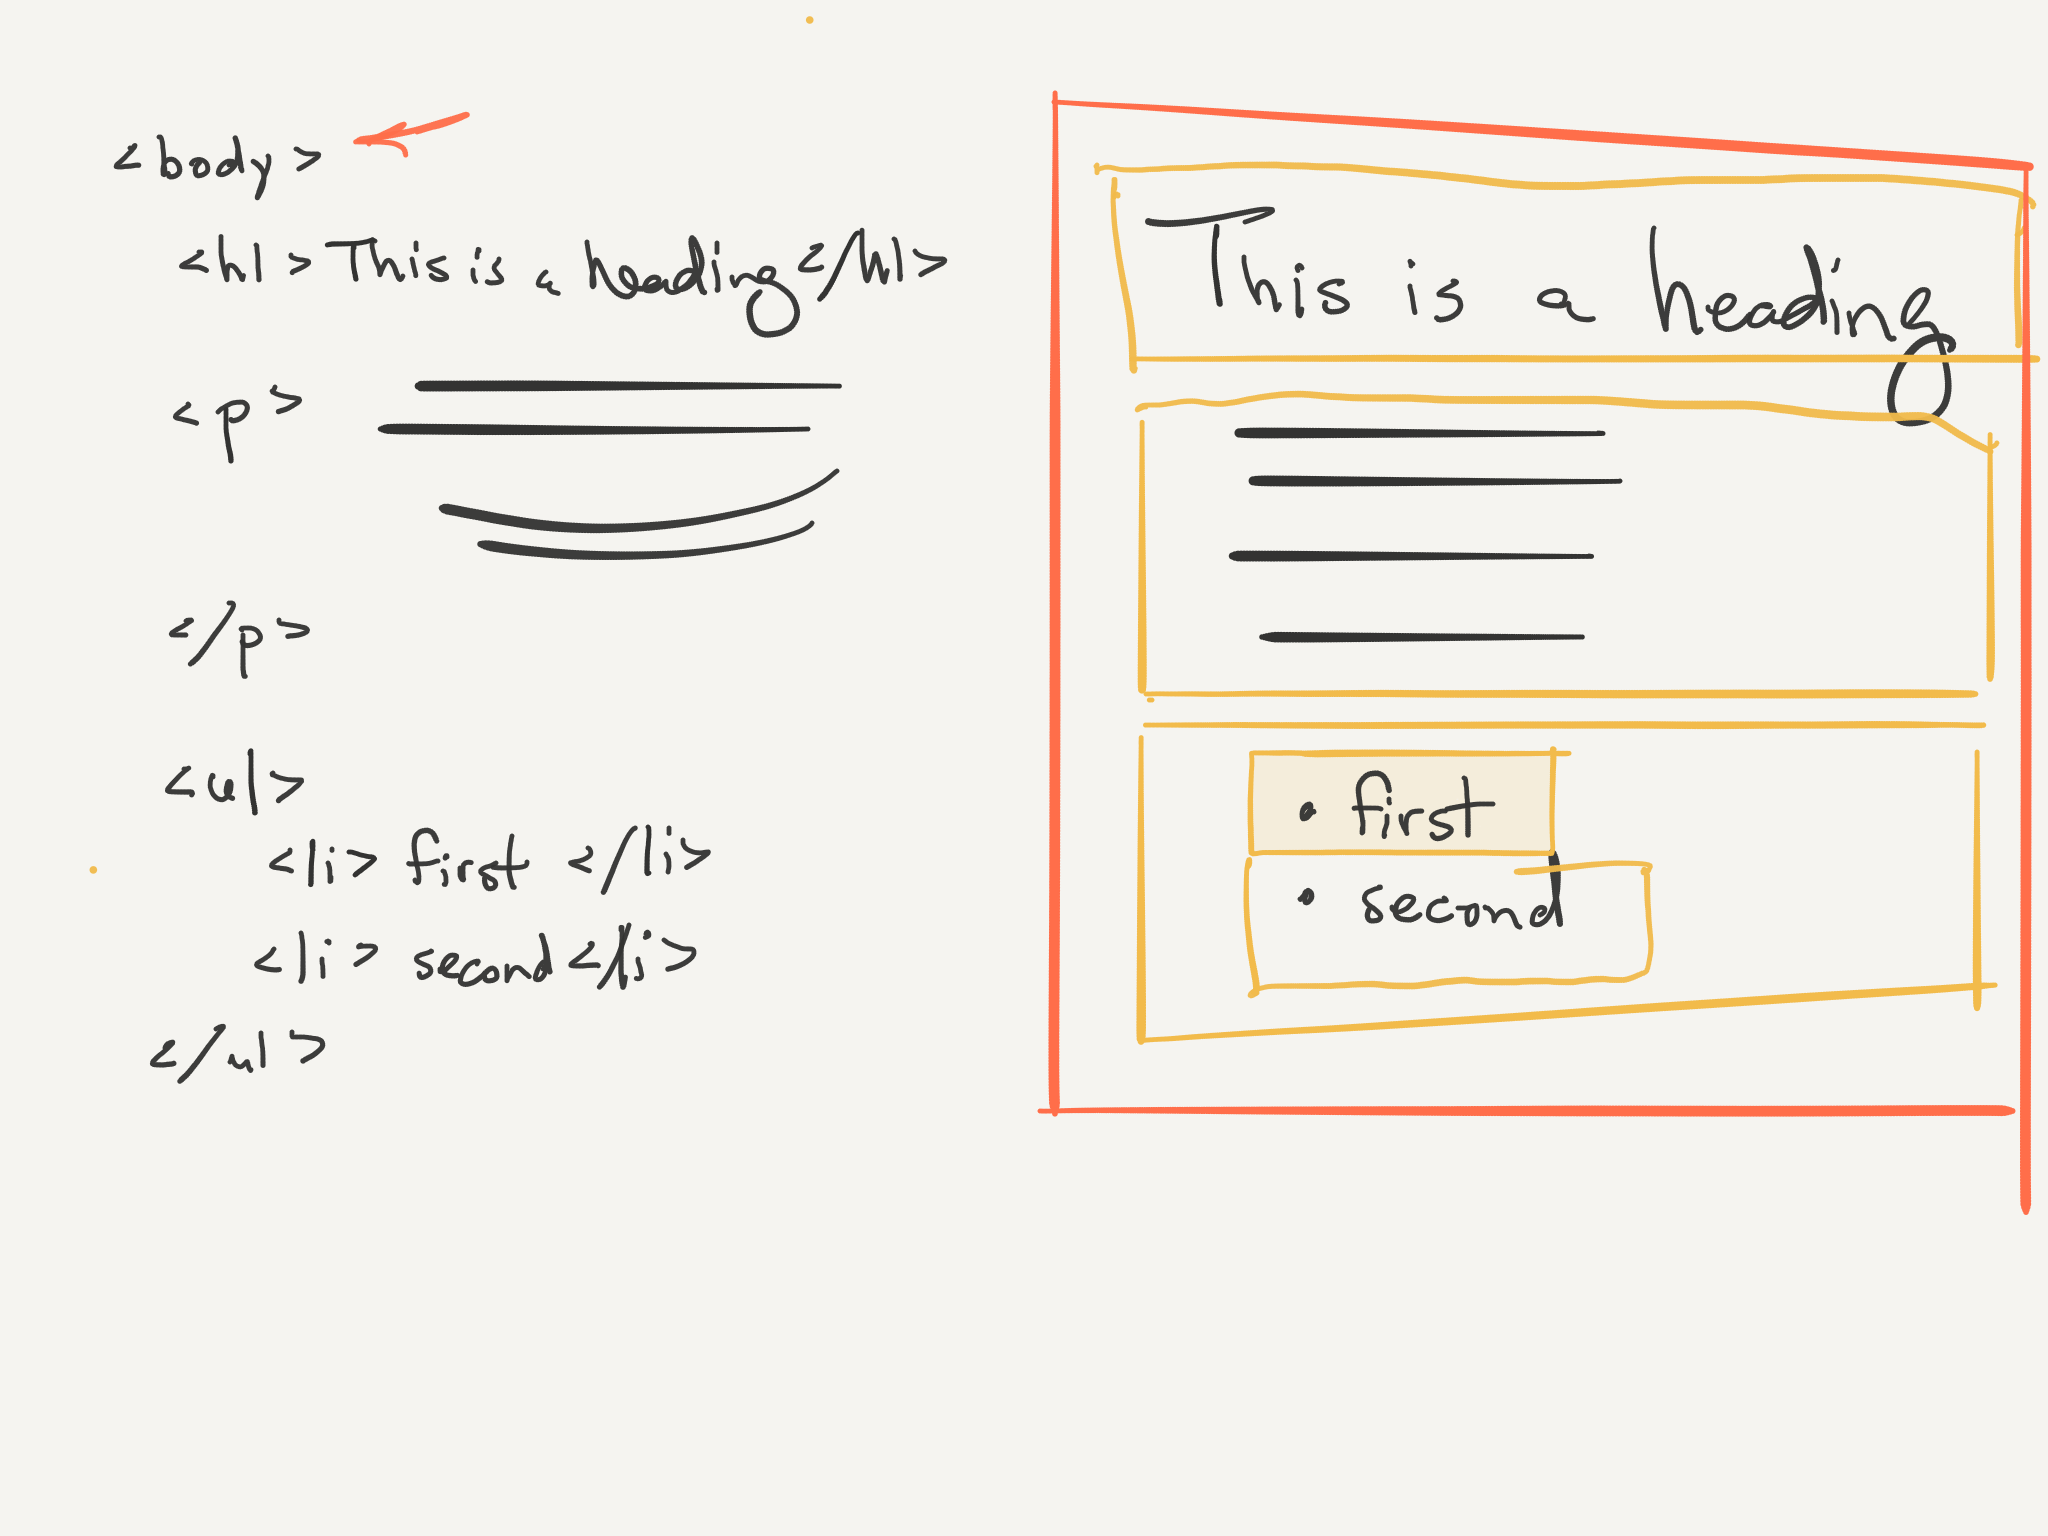 <body>
<h1>This is a heading</h1>
<p>
</p>
<ul>
<li> first </li>
<li> second </li>
</ul>
This is a heading
• first
• second